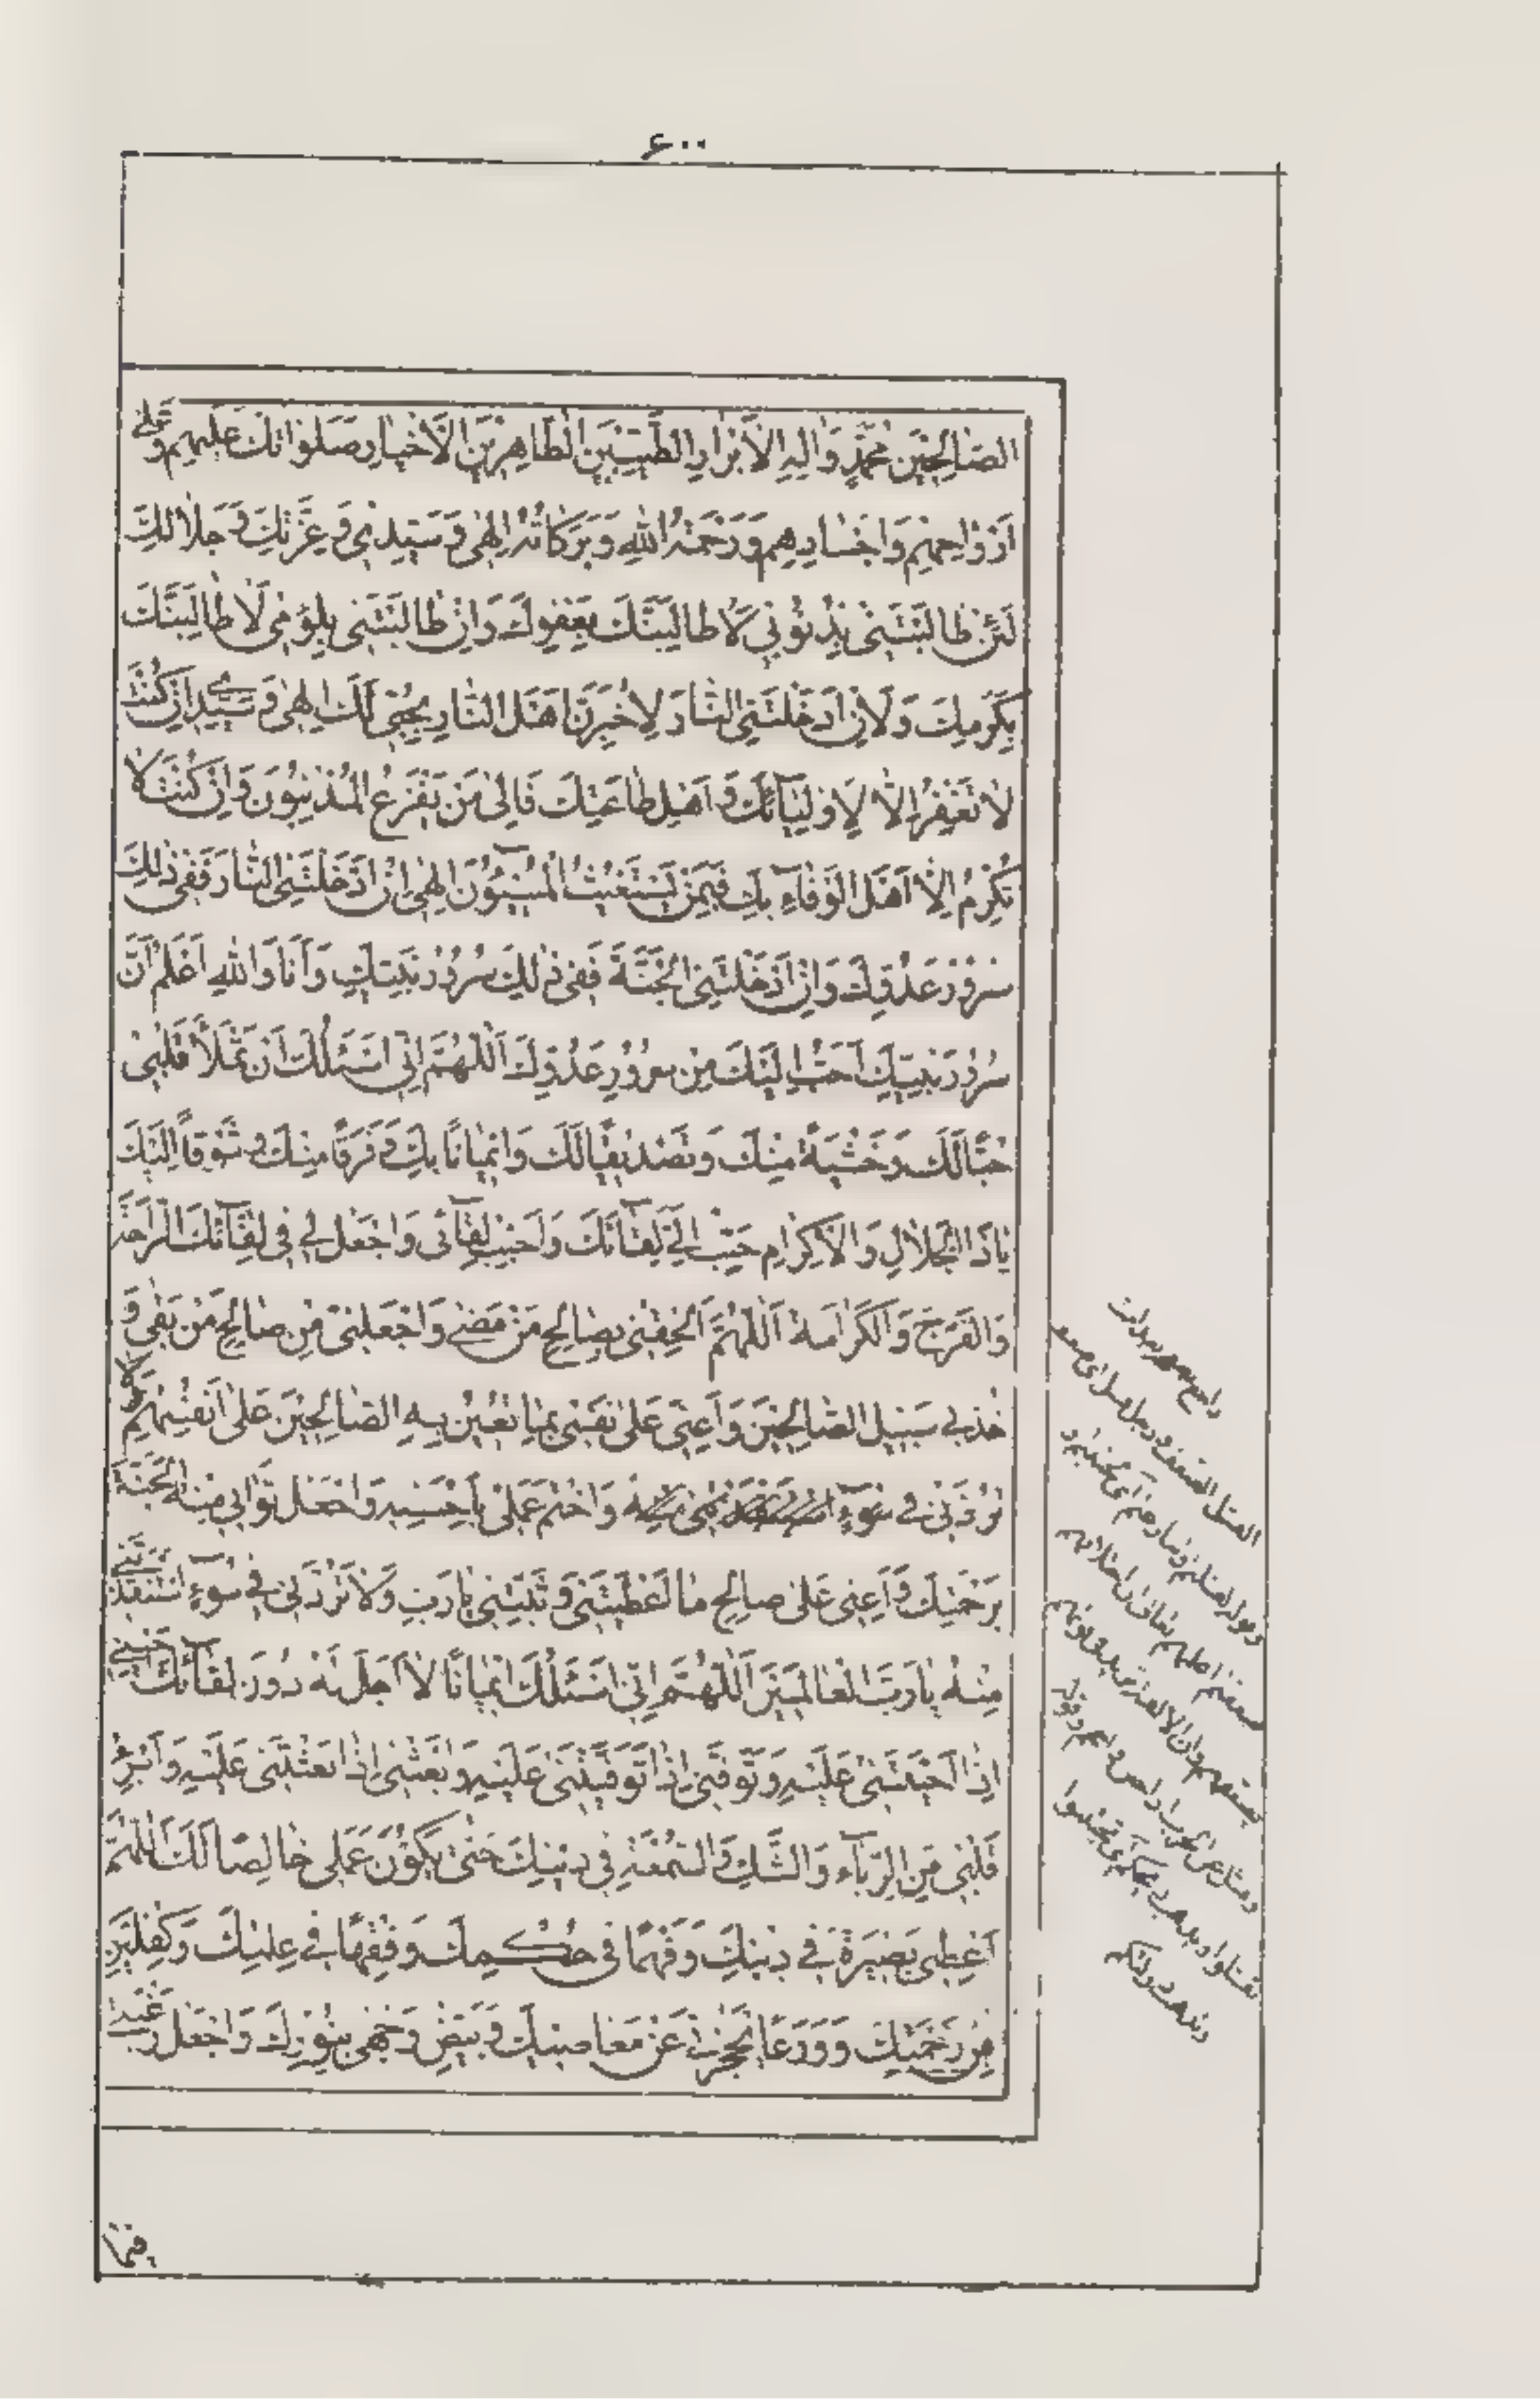 ۶۰۰
الصَّالِحِينَ مُحَمَّدٍ وَالِهِ الْأَبْرَارِ الطَّيِّبِينَ الطَّاهِرِينَ الْأَخْيَارِ صَلَوَاتُكَ عَلَيْهِمْ وَعَلَى
اَرْوَاحِهِمْ وَاَجْسَادِهِمْ وَرَحْمَةُ اللهِ وَبَرَكَاتُهُ اِلهِى وَسَيِّدِى وَعِزَّتِكَ وَجَلَالِكَ
لَئِنْ طَالَبْتَنِى بِذُنُوبِى لَاُطَالِبَنَّكَ بِعَفْوِكَ وَاِنْ طَالَبْتَنِى بِلُؤْمِى لَاُطَالِبَنَّكَ
بِكَرَمِكَ وَلَاِنْ اَدْخَلْتَنِى النَّارَ لِاُخْبِرَنَّ اَهْلَ النَّارِ بِحُبِّى لَكَ اِلهِى وَسَيِّدِى اِنْ كُنْتَ
لَا تَغْفِرُ اِلَّا لِاَوْلِيَآئِكَ وَاَهْلِ طَاعَتِكَ فَاِلىٰ مَنْ يَفْزَعُ الْمُذْنِبُونَ وَاِنْ كُنْتَ لَا
تُكْرِمُ اِلَّا اَهْلَ الْوَفَآءِ بِكَ فَبِمَنْ يَسْتَغِيثُ الْمُسِيئُونَ اِلهِى اِنْ اَدْخَلْتَنِى النَّارَ فَفِى ذٰلِكَ
سُرُورُ عَدُوِّكَ وَاِنْ اَدْخَلْتَنِى الْجَنَّةَ فَفِى ذٰلِكَ سُرُورُ نَبِيِّكَ وَاَنَا وَاللهِ اَعْلَمُ اَنَّ
سُرُورَ نَبِيِّكَ اَحَبُّ اِلَيْكَ مِنْ سُرُورِ عَدُوِّكَ اَللّٰهُمَّ اِنِّى اَسْئَلُكَ اَنْ تَمْلَاَ قَلْبِى
حُبًّا لَكَ وَخَشْيَةً مِنْكَ وَتَصْدِيقًا لَكَ وَاِيمَانًا بِكَ وَفَرَقًا مِنْكَ وَشَوْقًا اِلَيْكَ
يَا ذَا الْجَلَالِ وَالْاِكْرَامِ حَبِّبْ اِلَىَّ لِقَآئَكَ وَاَحْبِبْ لِقَآئِى وَاجْعَلْ لِى فِى لِقَآئِكَ الرَّاحَةَ
وَالْفَرَجَ وَالْكَرَامَةَ اَللّٰهُمَّ اَلْحِقْنِى بِصَالِحِ مَنْ مَضىٰ وَاجْعَلْنِى مِنْ صَالِحِ مَنْ بَقِىَ وَ
خُذْ بِى سَبِيلَ الصَّالِحِينَ وَاَعِنِّى عَلىٰ نَفْسِى بِمَا تُعِينُ بِهِ الصَّالِحِينَ عَلىٰ اَنْفُسِهِمْ وَلَا
تَرُدَّنِى فِى سُوءٍ وَاخْتِمْ عَمَلِى بِاَحْسَنِهِ وَاجْعَلْ ثَوَابِى مِنْهُ الْجَنَّةَ
بِرَحْمَتِكَ وَاَعِنِّى عَلىٰ صَالِحِ مَا اَعْطَيْتَنِى وَثَبِّتْنِى يَا رَبِّ وَلَا تَرُدَّنِى فِى سُوءٍ اسْتَنْقَذْتَنِى
مِنْهُ يَا رَبَّ الْعَالَمِينَ اَللّٰهُمَّ اِنِّى اَسْئَلُكَ اِيمَانًا لَا اَجَلَ لَهُ دُونَ لِقَآئِكَ اَحْيِنِى
اِذَا اَحْيَيْتَنِى عَلَيْهِ وَتَوَفَّنِى اِذَا تَوَفَّيْتَنِى عَلَيْهِ وَابْعَثْنِى اِذَا بَعَثْتَنِى عَلَيْهِ وَاَبْرِءْ
قَلْبِى مِنَ الرِّيَآءِ وَالشَّكِّ وَالسُّمْعَةِ فِى دِينِكَ حَتّىٰ يَكُونَ عَمَلِى خَالِصًا لَكَ اَللّٰهُمَّ
اَعْطِنِى بَصِيرَةً فِى دِينِكَ وَفَهْمًا فِى حُكْمِكَ وَفِقْهًا فِى عِلْمِكَ وَكِفْلَيْنِ
مِنْ رَحْمَتِكَ وَوَرَعًا يَحْجُزُنِى عَنْ مَعَاصِيكَ وَبَيِّضْ وَجْهِى بِنُورِكَ وَاجْعَلْ رَغْبَتِى
فيما